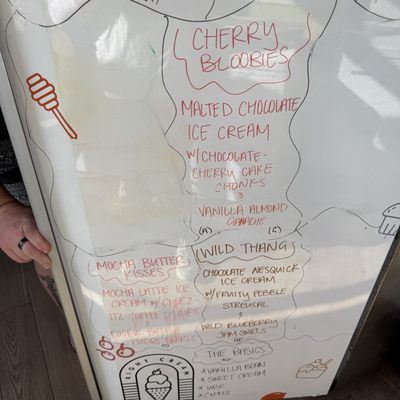 CHERRY
BLOOBIES
MALTED CHOCOLATE
ICE CREAM
W/ CHOCOLATE-
CHERRY CAKE
CHUNKS
&
VANILLA ALMOND
GANACHE
(A) (G)
MOCHA BUTTER
KISSES
MOCHA LATTE ICE
CREAM W/
TOFFEE
&
COOKIE BUTTER
FUDGE
WILD THANG
CHOCOLATE NESQUICK
ICE CREAM
W/ FRUITY PEBBLE
STREUSAL
&
WILD BLUEBERRY
JAM SWIRLS
THE BASICS
x VANILLA BEAN
x SWEET CREAM
x UBE
x COFFEE
EIGHT CREAM